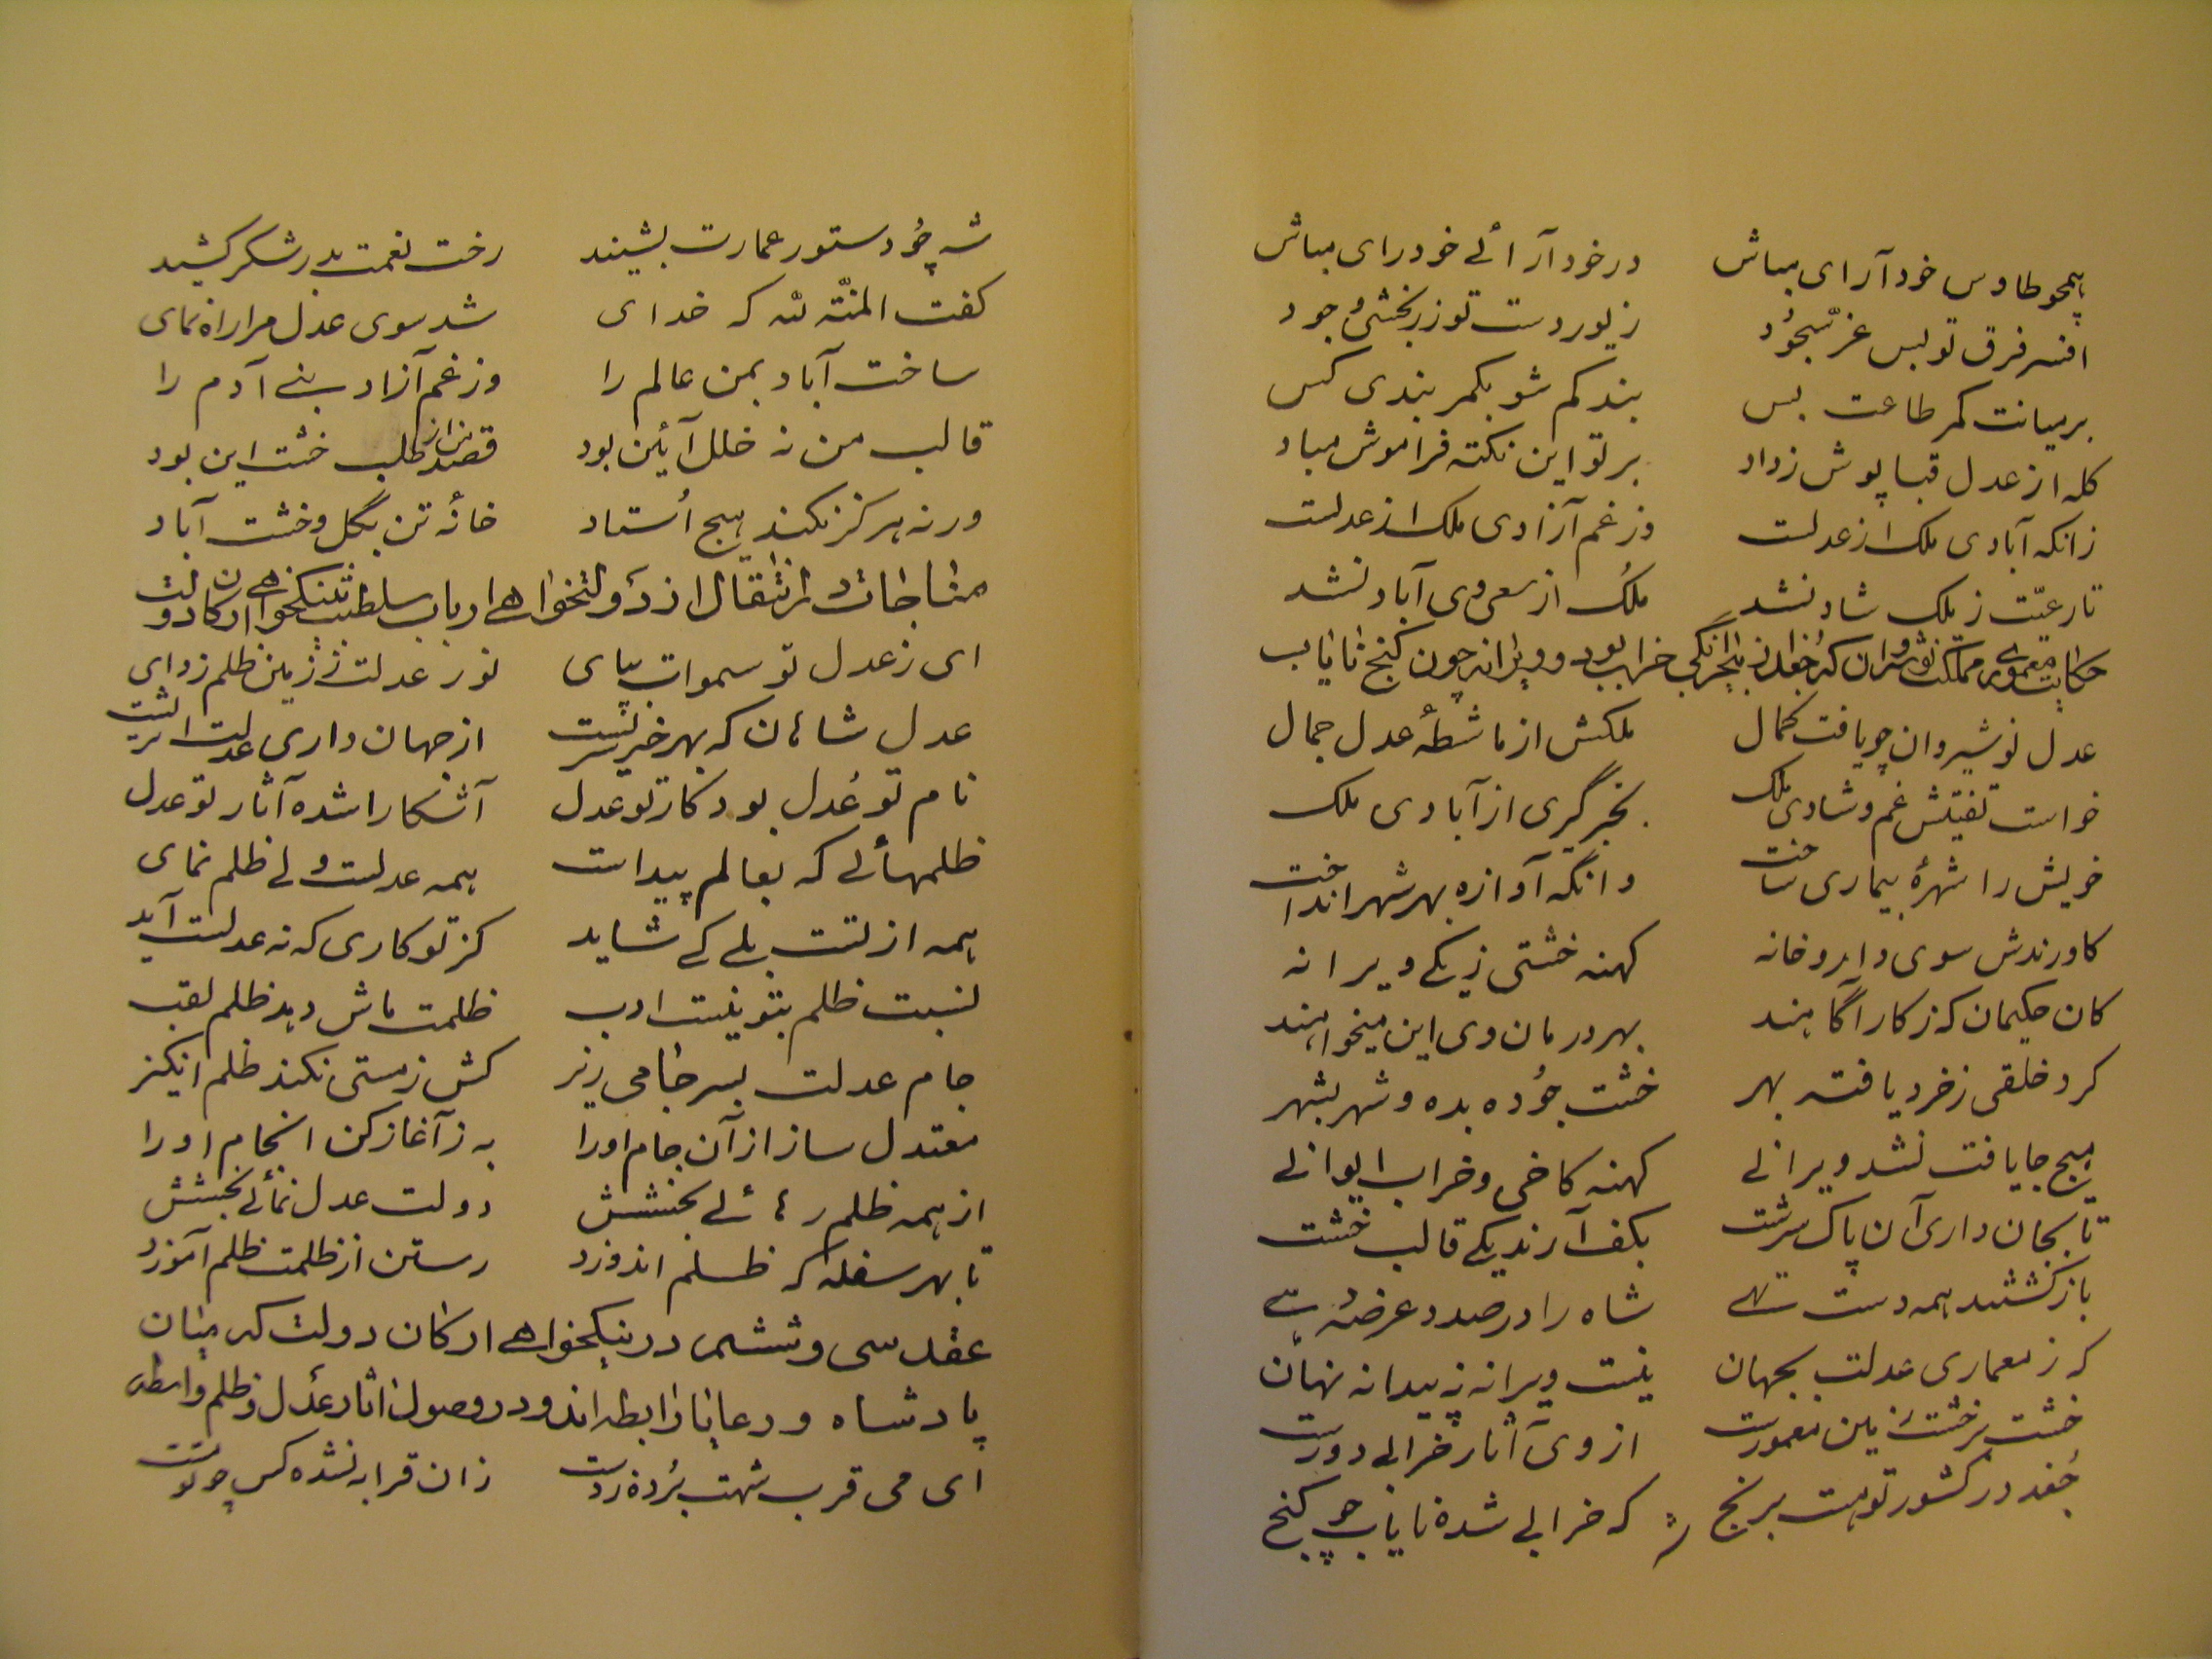 همچو طاوس خودآرای مباش در خودآرائے خودرای مباش
افسر فرق تو بس عزّ سجُود زیور دست تو زربخشیٔ جود
بر میانت کمر طاعت بس بند کم شو بکمربندی کس
کله از عدل قبا پوش ز داد بر تو این نکته فراموش مباد
زانکه آبادی ملک از عدلست وز غم آزادی ملک از عدلست
تا رعیّت ز ملک شاد نشد ملُک از سعی وی آباد نشد
حکایت معموری مملکت نوشیروان که جغد از بی خرابگی خراب بود و ویرانه چون کنج نایاب
عدل نوشیروان چو یافت کمال ملکش از ماشطهٔ عدل جمال
خواست تفتیش غم و شادی ملک بخبرگیری از آبادی ملک
خویش را شهرهٔ بیماری ساخت وانگه آوازه بهر شهر انداخت
کاورندش سوی داروخانه کهنه خشتی ز یکے ویرانه
کان حکیمان که ز کار آگاهند بهر درمان وی این میخواهند
کرد خلقی ز خرد یافته بهر خشت جُو ده بده و شهر بشهر
هیچ جا یافت نشد ویرانے کهنه کاخی و خراب ایوانے
تا بجان داری آن پاک سرشت بکف آرند یکے قالب خشت
بازگشتند همه دست تهے شاه را در صدد عرضه دهے
که ز معماری عدلت بجهان نیست ویرانه نه پیدا نه نهان
خشت بر خشت زمین معمورست از وی آثار خرابے دورست
جُغد در کشور تو هست برنج که خرابے شده نایاب چو کنج
شه چُو دستور عمارت بشنید رخت نعمت بدر شکر کشید
کفت المنّته لله که خدای شد سوی عدل مرا راه نمای
ساخت آباد بمن عالم را وز غم آزاد بنے آدم را
قالب من نه خلل آئین بود قصدم از طلب خشت این بود
ورنه هرکز نکند هیچ اُستاد خانهٔ تن بگل و خشت آباد
مناجات در انتقال از دولتخواهے ارباب سلطنت بنیکخواهے ارکان دولت
ای ز عدل تو سموات بپای نور عدلت ز زمین ظلم زدای
عدل شاهان که بهر خیر سریست از جهان داری عدلت اثریست
نام تو عُدل بود کار تو عدل آشکارا شده آثار تو عدل
ظلمهائے که بعالم پیداست همه عدلست ولے ظلم نمای
همه از تست بلے کے شاید کز تو کاری که نه عدلست آید
نسبت ظلم بتو نیست ادب ظلمت ماش دهد ظلم لقب
جام عدلت بسر جامی ریز کش ز مستی نکند ظلم انکیز
معتدل ساز از آن جام او را به ز آغاز کن انجام او را
از همه ظلم رهائے بخشش دولت عدل نمائے بخشش
تا بهر سفله که ظلم اندوزد رستن از ظلمت ظلم آموزد
عقد سی و ششم در نیکخواهے ارکان دولت که میان
پادشاه و رعایا رابطه اند و در وصول اثار عدل و ظلم واسطه
ای می قرب شهت بُرده ز دست زان قرابه نشده کس چو تو مست